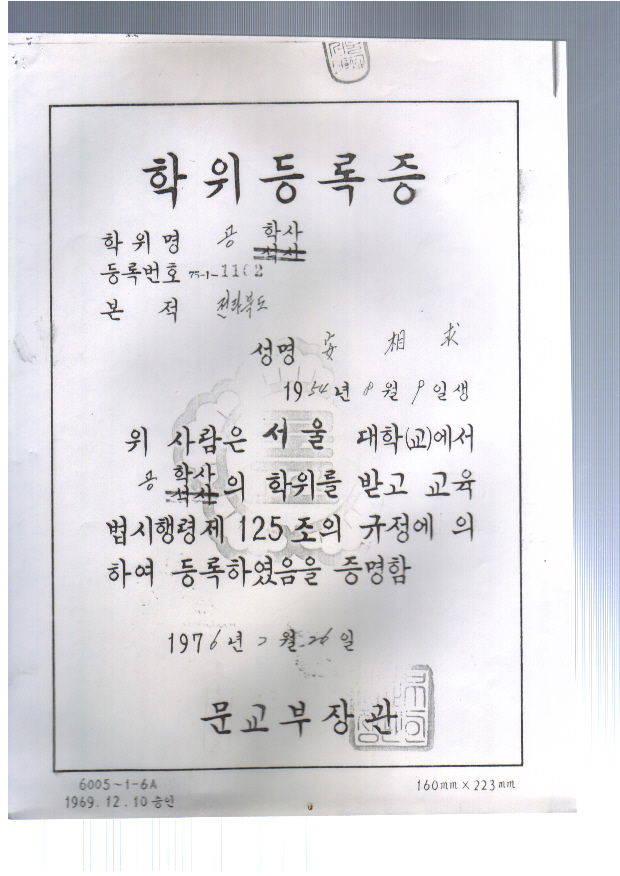 학위등록증
학위명 공 학사
석사
등록번호 75-1-1102
본 적 전라북도
성명 安 相 求
1954년 8월 9일생
위 사람은 서울 대학(교)에서
공 학사
석사의 학위를 받고 교육
법시행령제 125조의 규정에 의
하여 등록하였음을 증명함
1976년 2월 26일
문교부장관
6005~1-6A
1969.12.10 승인
160mm×223mm